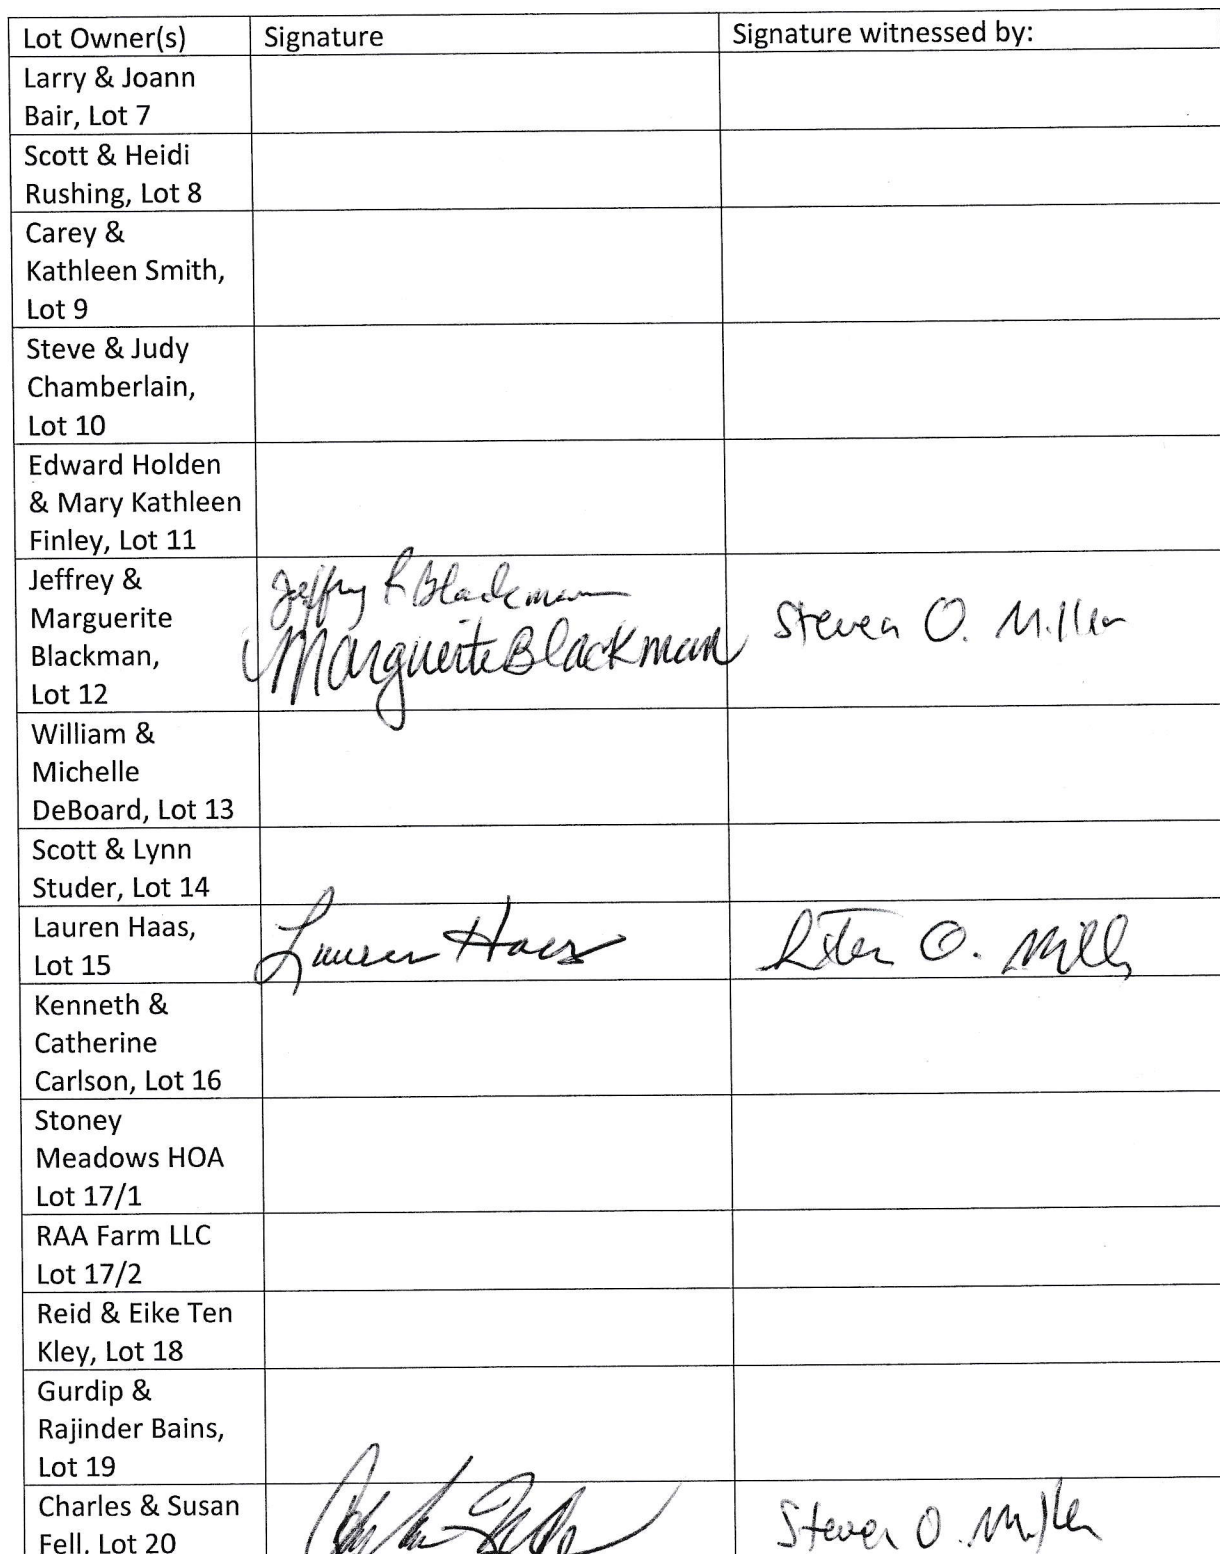 Lot Owner(s) Signature Signature witnessed by:
Larry & Joann
Bair, Lot 7
Scott & Heidi
Rushing, Lot 8
Carey &
Kathleen Smith,
Lot 9
Steve & Judy
Chamberlain,
Lot 10
Edward Holden
& Mary Kathleen
Finley, Lot 11
Jeffrey &
Marguerite
Blackman,
Lot 12
Jeffry R Blackman
Marguerite Blackman
Steven O. Miller
William &
Michelle
DeBoard, Lot 13
Scott & Lynn
Studer, Lot 14
Lauren Haas,
Lot 15
Lauren Haas
O.
Kenneth &
Catherine
Carlson, Lot 16
Stoney
Meadows HOA
Lot 17/1
RAA Farm LLC
Lot 17/2
Reid & Eike Ten
Kley, Lot 18
Gurdip &
Rajinder Bains,
Lot 19
Charles & Susan
Fell, Lot 20
Steven O. Miller